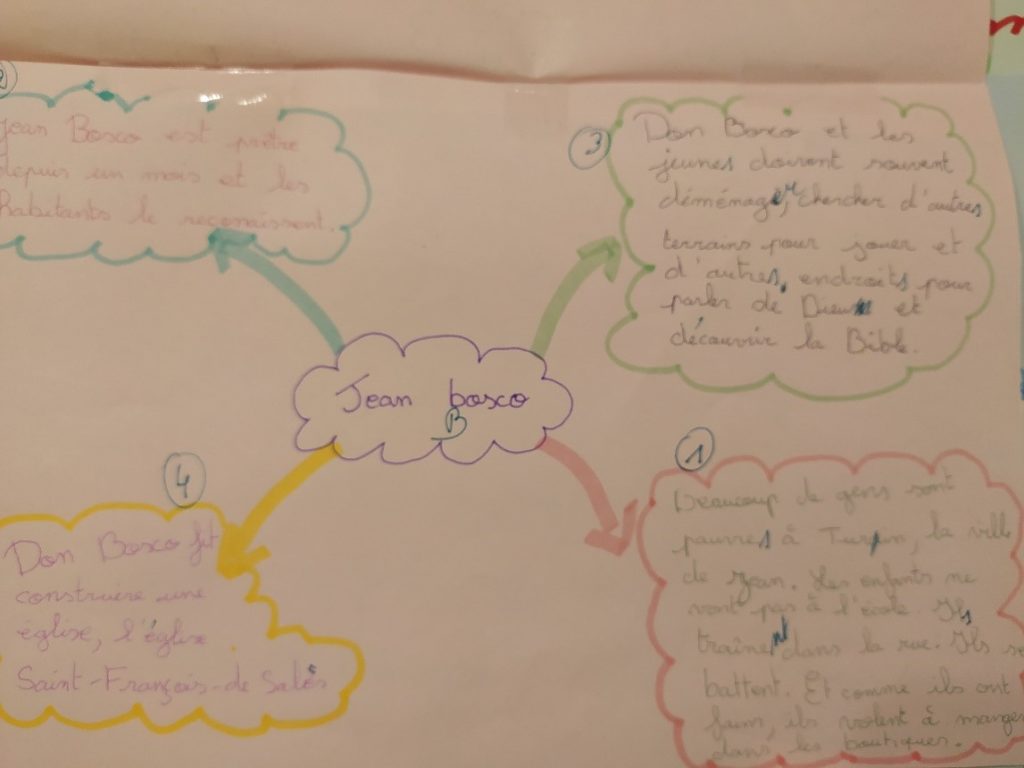 2
Jean Bosco est prêtre
depuis un mois et les
habitants le reconnaissent.
3
Don Bosco et les
jeunes doivent souvent
déménager, chercher d'autres
terrains pour jouer et
d'autres endroits pour
parler de Dieu et
découvrir la Bible.
Jean bosco
B
4
Don Bosco fit
construire une
église, l'église
Saint-François-de Sales
1
Beaucoup de gens sont
pauvres à Turin, la ville
de Jean. Les enfants ne
vont pas à l'école. Ils
traînent dans la rue. Ils se
battent. Et comme ils ont
faim, ils volent à manger
dans les boutiques.